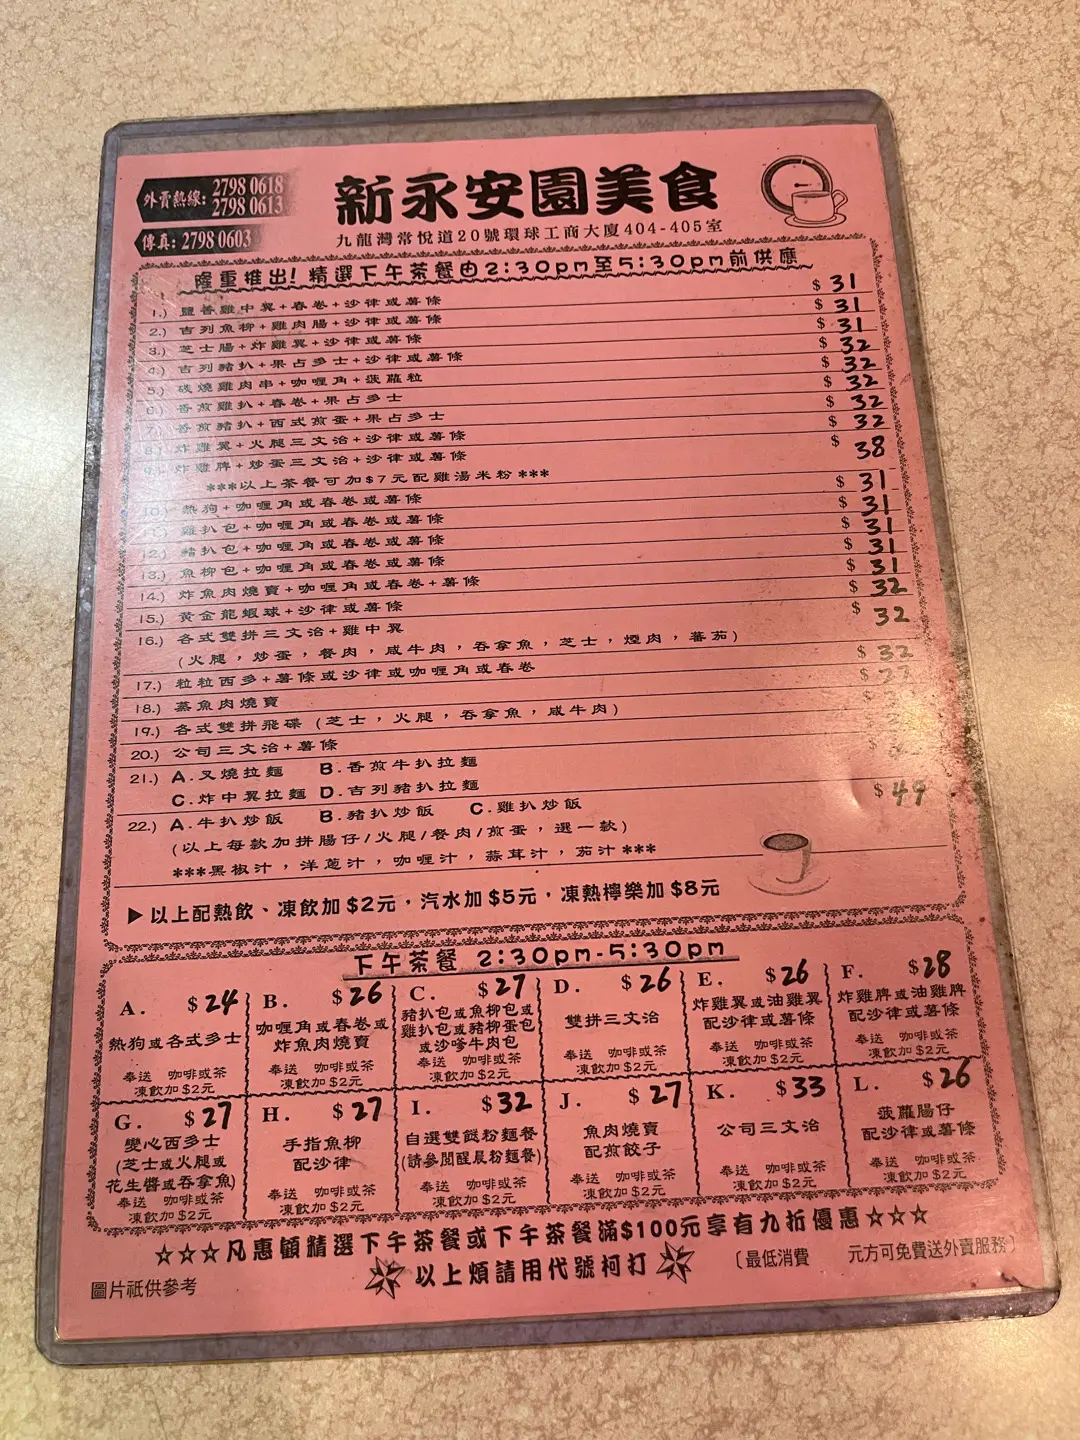 外賣熱線: 2798 0618
2798 0613
傳真: 2798 0603
新永安園美食
九龍灣常悅道20號環球工商大廈404-405室
隆重推出! 精選下午茶餐由2:30pm至5:30pm前供應
1.) 鹽香雞中翼+春卷+沙律或薯條 $31
2.) 吉列魚柳+雞肉腸+沙律或薯條 $31
3.) 芝士腸+炸雞翼+沙律或薯條 $31
4.) 吉列豬扒+果占多士+沙律或薯條 $32
5.) 碳燒雞肉串+咖喱角+菠蘿粒 $32
6.) 香煎雞扒+春卷+果占多士 $32
7.) 香煎豬扒+西式煎蛋+果占多士 $32
8.) 炸雞翼+火腿三文治+沙律或薯條 $32
9.) 炸雞髀+炒蛋三文治+沙律或薯條 $38
***以上茶餐可加$7元配雞湯米粉***
10.) 熱狗+咖喱角或春卷或薯條 $31
11.) 雞扒包+咖喱角或春卷或薯條 $31
12.) 豬扒包+咖喱角或春卷或薯條 $31
13.) 魚柳包+咖喱角或春卷或薯條 $31
14.) 炸魚肉燒賣+咖喱角或春卷+薯條 $31
15.) 黃金龍蝦球+沙律或薯條 $32
16.) 各式雙拼三文治+雞中翼 $32
(火腿，炒蛋，餐肉，咸牛肉，吞拿魚，芝士，煙肉，蕃茄)
17.) 粒粒西多+薯條或沙律或咖喱角或春卷 $32
18.) 蒸魚肉燒賣 $27
19.) 各式雙拼飛碟 (芝士，火腿，吞拿魚，咸牛肉)
20.) 公司三文治+薯條
21.) A.叉燒拉麵 B.香煎牛扒拉麵
C.炸中翼拉麵 D.吉列豬扒拉麵
22.) A.牛扒炒飯 B.豬扒炒飯 C.雞扒炒飯 $49
(以上每款加拼腸仔/火腿/餐肉/煎蛋，選一款)
***黑椒汁，洋蔥汁，咖喱汁，蒜茸汁，茄汁***
▶以上配熱飲、凍飲加$2元，汽水加$5元，凍熱檸樂加$8元
下午茶餐 2:30pm-5:30pm
A. $24
熱狗或各式多士
奉送 咖啡或茶
凍飲加$2元
B. $26
咖喱角或春卷或
炸魚肉燒賣
奉送 咖啡或茶
凍飲加$2元
C. $27
豬扒包或魚柳包或
雞扒包或豬柳蛋包
或沙嗲牛肉包
奉送 咖啡或茶
凍飲加$2元
D. $26
雙拼三文治
奉送 咖啡或茶
凍飲加$2元
E. $26
炸雞翼或油雞翼
配沙律或薯條
奉送 咖啡或茶
凍飲加$2元
F. $28
炸雞髀或油雞髀
配沙律或薯條
奉送 咖啡或茶
凍飲加$2元
G. $27
變心西多士
(芝士或火腿或
花生醬或吞拿魚)
奉送 咖啡或茶
凍飲加$2元
H. $27
手指魚柳
配沙律
奉送 咖啡或茶
凍飲加$2元
I. $32
自選雙餸粉麵餐
(請參閱醒晨粉麵餐)
奉送 咖啡或茶
凍飲加$2元
J. $27
魚肉燒賣
配煎餃子
奉送 咖啡或茶
凍飲加$2元
K. $33
公司三文治
奉送 咖啡或茶
凍飲加$2元
L. $26
菠蘿腸仔
配沙律或薯條
奉送 咖啡或茶
凍飲加$2元
☆☆☆凡惠顧精選下午茶餐或下午茶餐滿$100元享有九折優惠☆☆☆
以上煩請用代號柯打
〔最低消費 元方可免費送外賣服務〕
圖片祇供參考